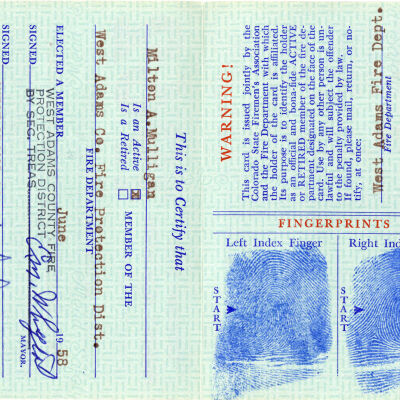 This is to Certify that
Milton A. Mulligan
Is an Active ☒
Is a Retired ☐
MEMBER OF THE
West Adams Co. Fire Protection Dist.
FIRE DEPARTMENT
ELECTED A MEMBER June 1958
SIGNED
WEST ADAMS COUNTY FIRE
PROTECN DISTRICT
BY SEC. TREAS.
MAYOR.
SIGNED
WARNING!
This card is issued jointly by the
Colorado State Firemen's Association
and the Fire Department with which
the holder of the card is affiliated.
Its purpose is to identify the holder
as an official and bona-fide ACTIVE
or RETIRED member of the fire de-
partment designated on the face of the
card. Use by any other person is un-
lawful and will subject the offender
to the penalty provided by law.
If found, please mail, return, or no-
tify, at once:
West Adams Fire Dept.
Fire Department
FINGERPRINTS
Left Index Finger
Right Ind
START
START